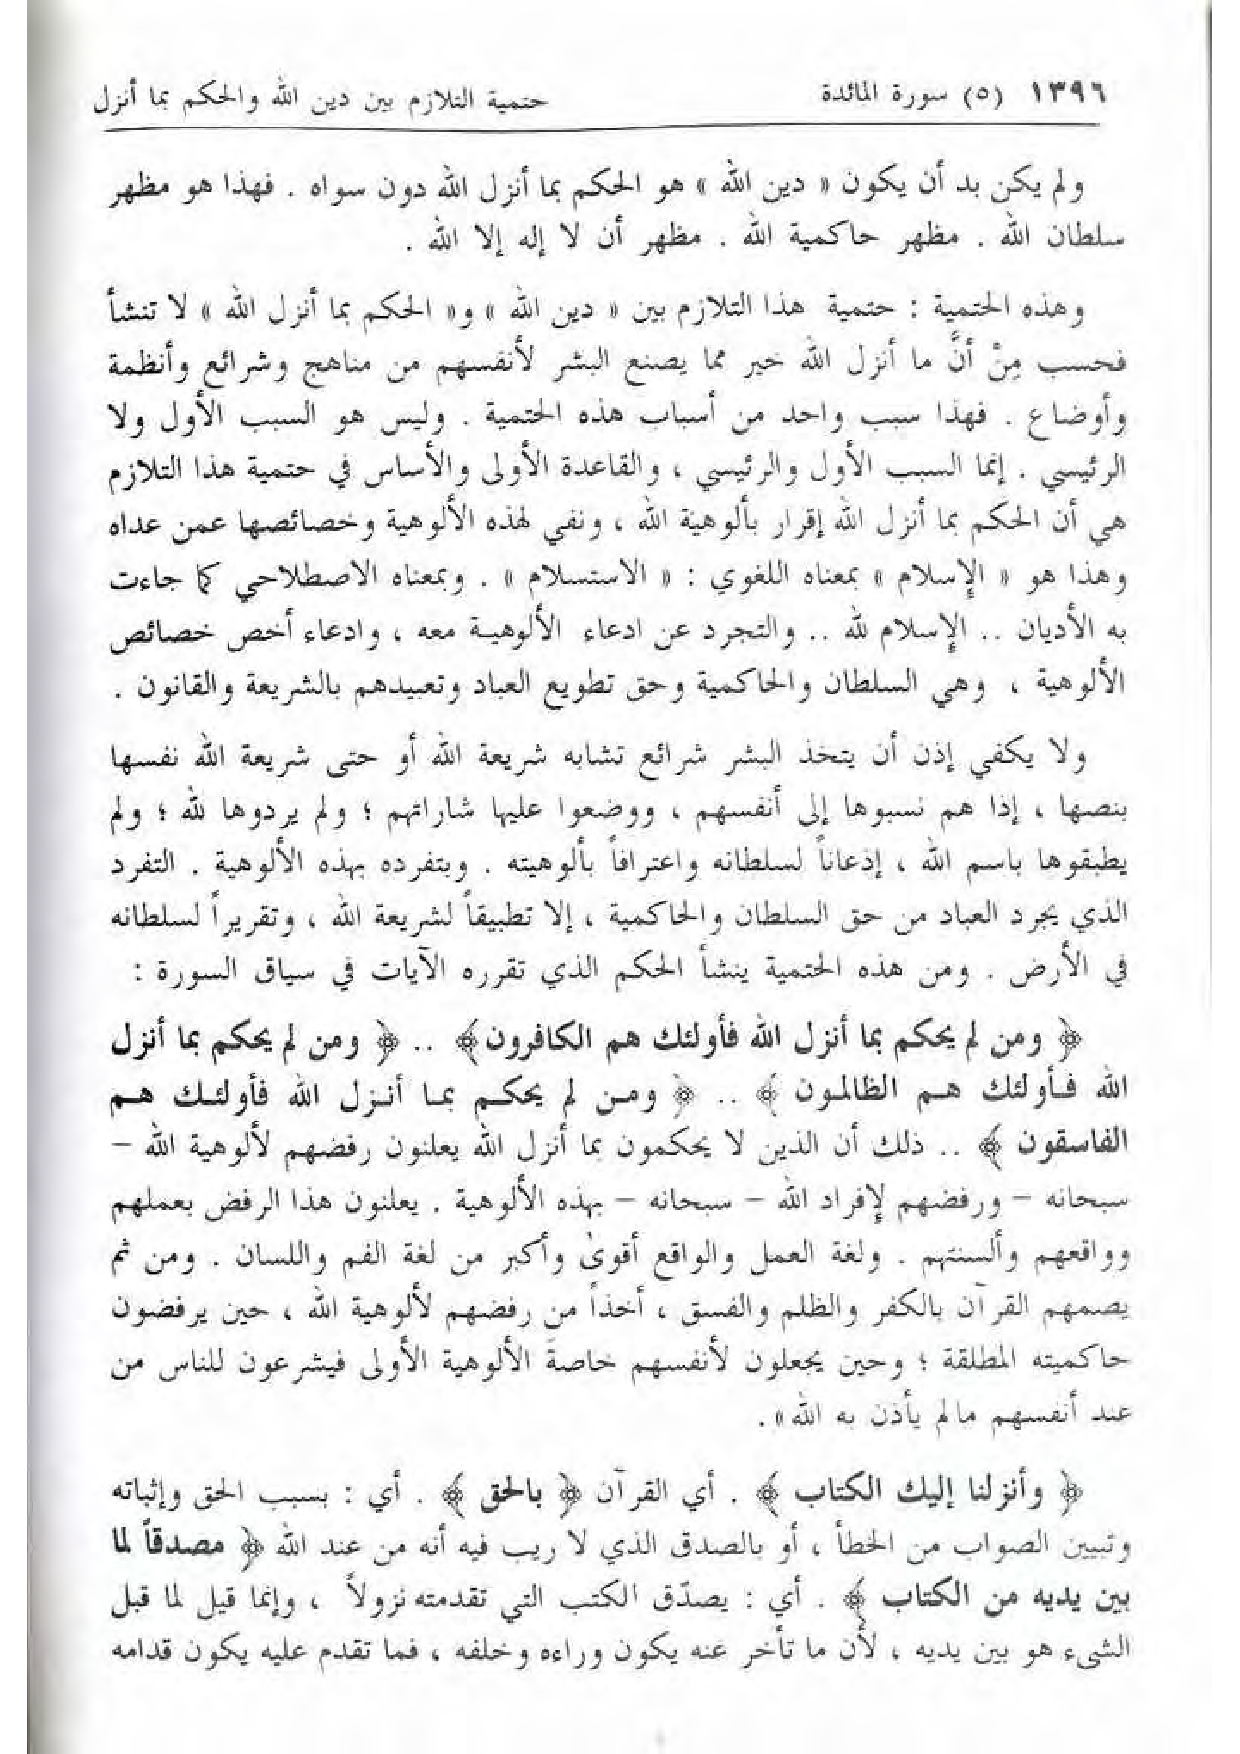 ١٣٩٦ (٥) سورة المائدة حتمية التلازم بين دين الله والحكم بما أنزل
ولم يكن بد أن يكون « دين الله » هو الحكم بما أنزل الله دون سواه . فهذا هو مظهر
سلطان الله . مظهر حاكمية الله . مظهر أن لا إله إلا الله .
وهذه الحتمية : حتمية هذا التلازم بين « دين الله » و« الحكم بما أنزل الله » لا تنشأ
فحسب مِنْ أنَّ ما أنزل الله خير مما يصنع البشر لأنفسهم من مناهج وشرائع وأنظمة
وأوضاع . فهذا سبب واحد من أسباب هذه الحتمية . وليس هو السبب الأول ولا
الرئيسي . إنما السبب الأول والرئيسي ، والقاعدة الأولى والأساس في حتمية هذا التلازم
هي أن الحكم بما أنزل الله إقرار بألوهية الله ، ونفي لهذه الألوهية وخصائصها عمن عداه
وهذا هو « الإسلام » بمعناه اللغوي : « الاستسلام » . وبمعناه الاصطلاحي كما جاءت
به الأديان .. الإسلام لله .. والتجرد عن ادعاء الألوهية معه ، وادعاء أخص خصائص
الألوهية ، وهي السلطان والحاكمية وحق تطويع العباد وتعبيدهم بالشريعة والقانون .
ولا يكفي إذن أن يتخذ البشر شرائع تشابه شريعة الله أو حتى شريعة الله نفسها
بنصها ، إذا هم نسبوها إلى أنفسهم ، ووضعوا عليها شاراتهم ؛ ولم يردوها لله ؛ ولم
يطبقوها باسم الله ، إذعاناً لسلطانه واعترافاً بألوهيته . وبتفرده بهذه الألوهية . التفرد
الذي يجرد العباد من حق السلطان والحاكمية ، إلا تطبيقاً لشريعة الله ، وتقريراً لسلطانه
في الأرض . ومن هذه الحتمية ينشأ الحكم الذي تقرره الآيات في سياق السورة :
﴿ ومن لم يحكم بما أنزل الله فأولئك هم الكافرون﴾ .. ﴿ ومن لم يحكم بما أنزل
الله فأولئك هم الظالمون ﴾ .. ﴿ ومن لم يحكم بما أنزل الله فأولئك هم
الفاسقون ﴾ .. ذلك أن الذين لا يحكمون بما أنزل الله يعلنون رفضهم لألوهية الله –
سبحانه – ورفضهم لإفراد الله – سبحانه – بهذه الألوهية . يعلنون هذا الرفض بعملهم
وواقعهم وألسنتهم . ولغة العمل والواقع أقوىٰ وأكبر من لغة الفم واللسان . ومن ثم
يصمهم القرآن بالكفر والظلم والفسق ، أخذاً من رفضهم لألوهية الله ، حين يرفضون
حاكميته المطلقة ؛ وحين يجعلون لأنفسهم خاصةَ الألوهية الأولى فيشرعون للناس من
عند أنفسهم مالم يأذن به الله» .
﴿ وأنزلنا إليك الكتاب ﴾ . أي القرآن ﴿ بالحق ﴾ . أي : بسبب الحق وإثباته
وتبيين الصواب من الخطأ ، أو بالصدق الذي لا ريب فيه أنه من عند الله ﴿ مصدقاً لما
بين يديه من الكتاب ﴾ . أي : يصدّق الكتب التي تقدمته نزولاً ، وإنما قيل لما قبل
الشيء هو بين يديه ، لأن ما تأخر عنه يكون وراءه وخلفه ، فما تقدم عليه يكون قدامه